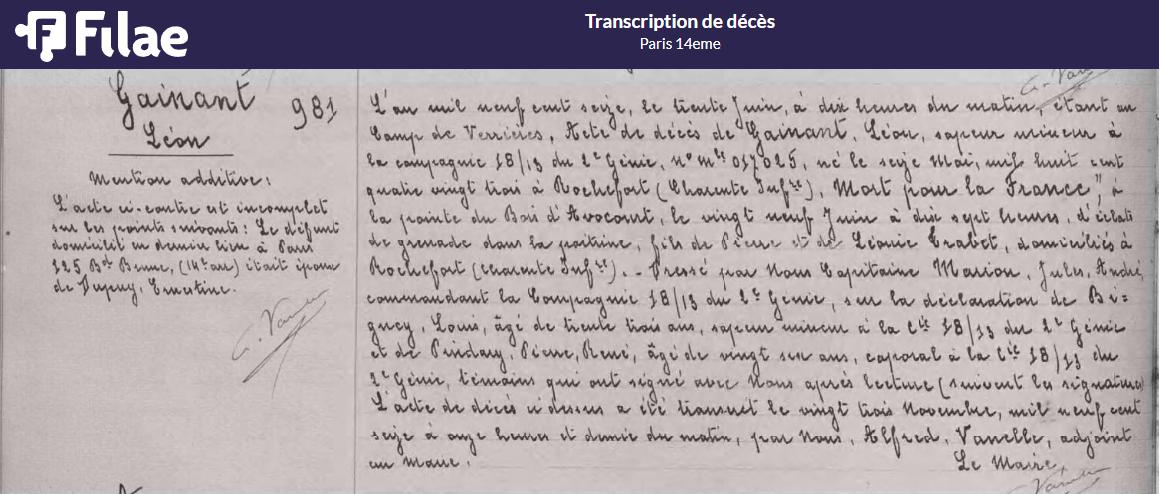 Filae
Transcription de décès
Paris 14eme
Gainant
Léon
981
Mention additive:
L'acte ci-contre est incomplet
sur les points suivants: Le défunt
domicilié en dernier lieu à Paris
125 Bd Brune, (14e arr) était époux
de Dupuy, Ernestine.
L'an mil neuf cent seize, le trente Juin, à dix heures du matin, étant au
Camp de Verrières, Acte de décès de Gainant, Léon, sapeur mineur à
la compagnie 18/13 du 2e Génie, n° mle 017025, né le seize Mai, mil huit cent
quatre vingt trois à Rochefort (Charente Infre), Mort pour la France", à
la pointe du Bois d'Avocourt, le vingt neuf Juin à dix sept heures, d'éclats
de grenade dans la poitrine, fils de Pierre et de Léonie Trabet, domiciliés à
Rochefort (Charente Infre). - Dressé par Nous Capitaine Marion, Jules, André,
commandant la Compagnie 18/13 du 2e Génie, sur la déclaration de Bi=
gney, Louis, âgé de trente trois ans, sapeur mineur à la Cie 18/13 du 2e Génie
et de Pinday, Pierre, René, âgé de vingt six ans, caporal à la Cie 18/13 du
2e Génie, témoins qui ont signé avec Nous après lecture (suivent les signatures)
L'acte de décès ci dessus a été transcrit le vingt trois Novembre, mil neuf cent
seize à onze heures et demie du matin, par Nous, Alfred, Vanelle, adjoint
au Maire.
Le Maire